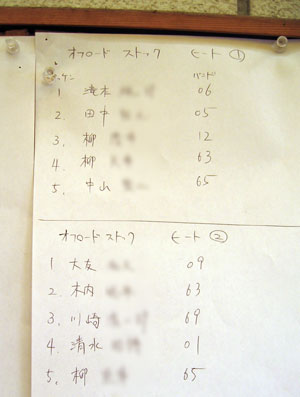 オフロード ストック ヒート ①
ゼッケン バンド
1 滝本 06
2. 田中 05
3. 柳 12
4. 柳 63
5. 中山 65
オフロード ストック ヒート ②
1 大友 09
2. 木内 63
3. 川崎 69
4. 清水 01
5. 柳 65